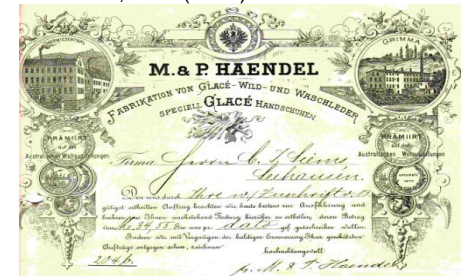 WIESENTHAL
GRIMMA
M. & P. HAENDEL
FABRIKATION VON GLACÉ-WILD- UND WASCHLEDER
SPECIELL GLACÉ HANDSCHUHEN
PRÄMIIRT
auf den
Australischen Weltausstellungen
PRÄMIIRT
auf den
Australischen Weltausstellungen
Firma Herrn
Seehausen.
Den uns durch
gütigst ertheilten Auftrag brachten wir heute bestens zur Ausführung und
Ihnen nachstehend Factura hierüber zu ertheilen, deren Betrag
von M. 34.55 Sie uns pr. dato gef. gutschreiben wollen.
Indem wir mit Vergnügen der baldigen Erneuerung Ihrer geschätzten
Aufträge entgegen sehen, zeichnen
hochachtungsvoll
M. & P. Haendel